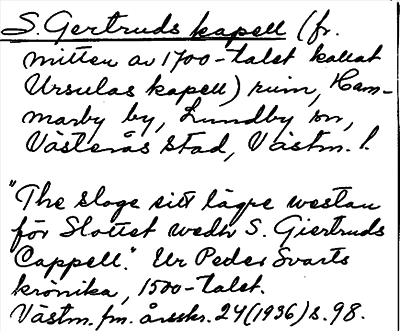 S. Gertruds kapell (fr.
mitten av 1700-talet kallat
Ursulas kapell) ruin, Ham-
marby by, Lundby sn,
Västerås stad, Västm. l.
"The sloge sitt lägre westan
för Slottet wedh S. Giertruds
Cappell." Ur Peder Svarts
krönika, 1500-talet.
Västm. fm. årsskr. 24 (1936) s. 98.